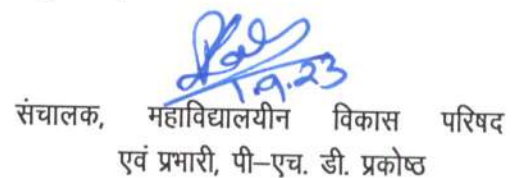 1.9.23
संचालक, महाविद्यालयीन विकास परिषद
एवं प्रभारी, पी–एच. डी. प्रकोष्ठ